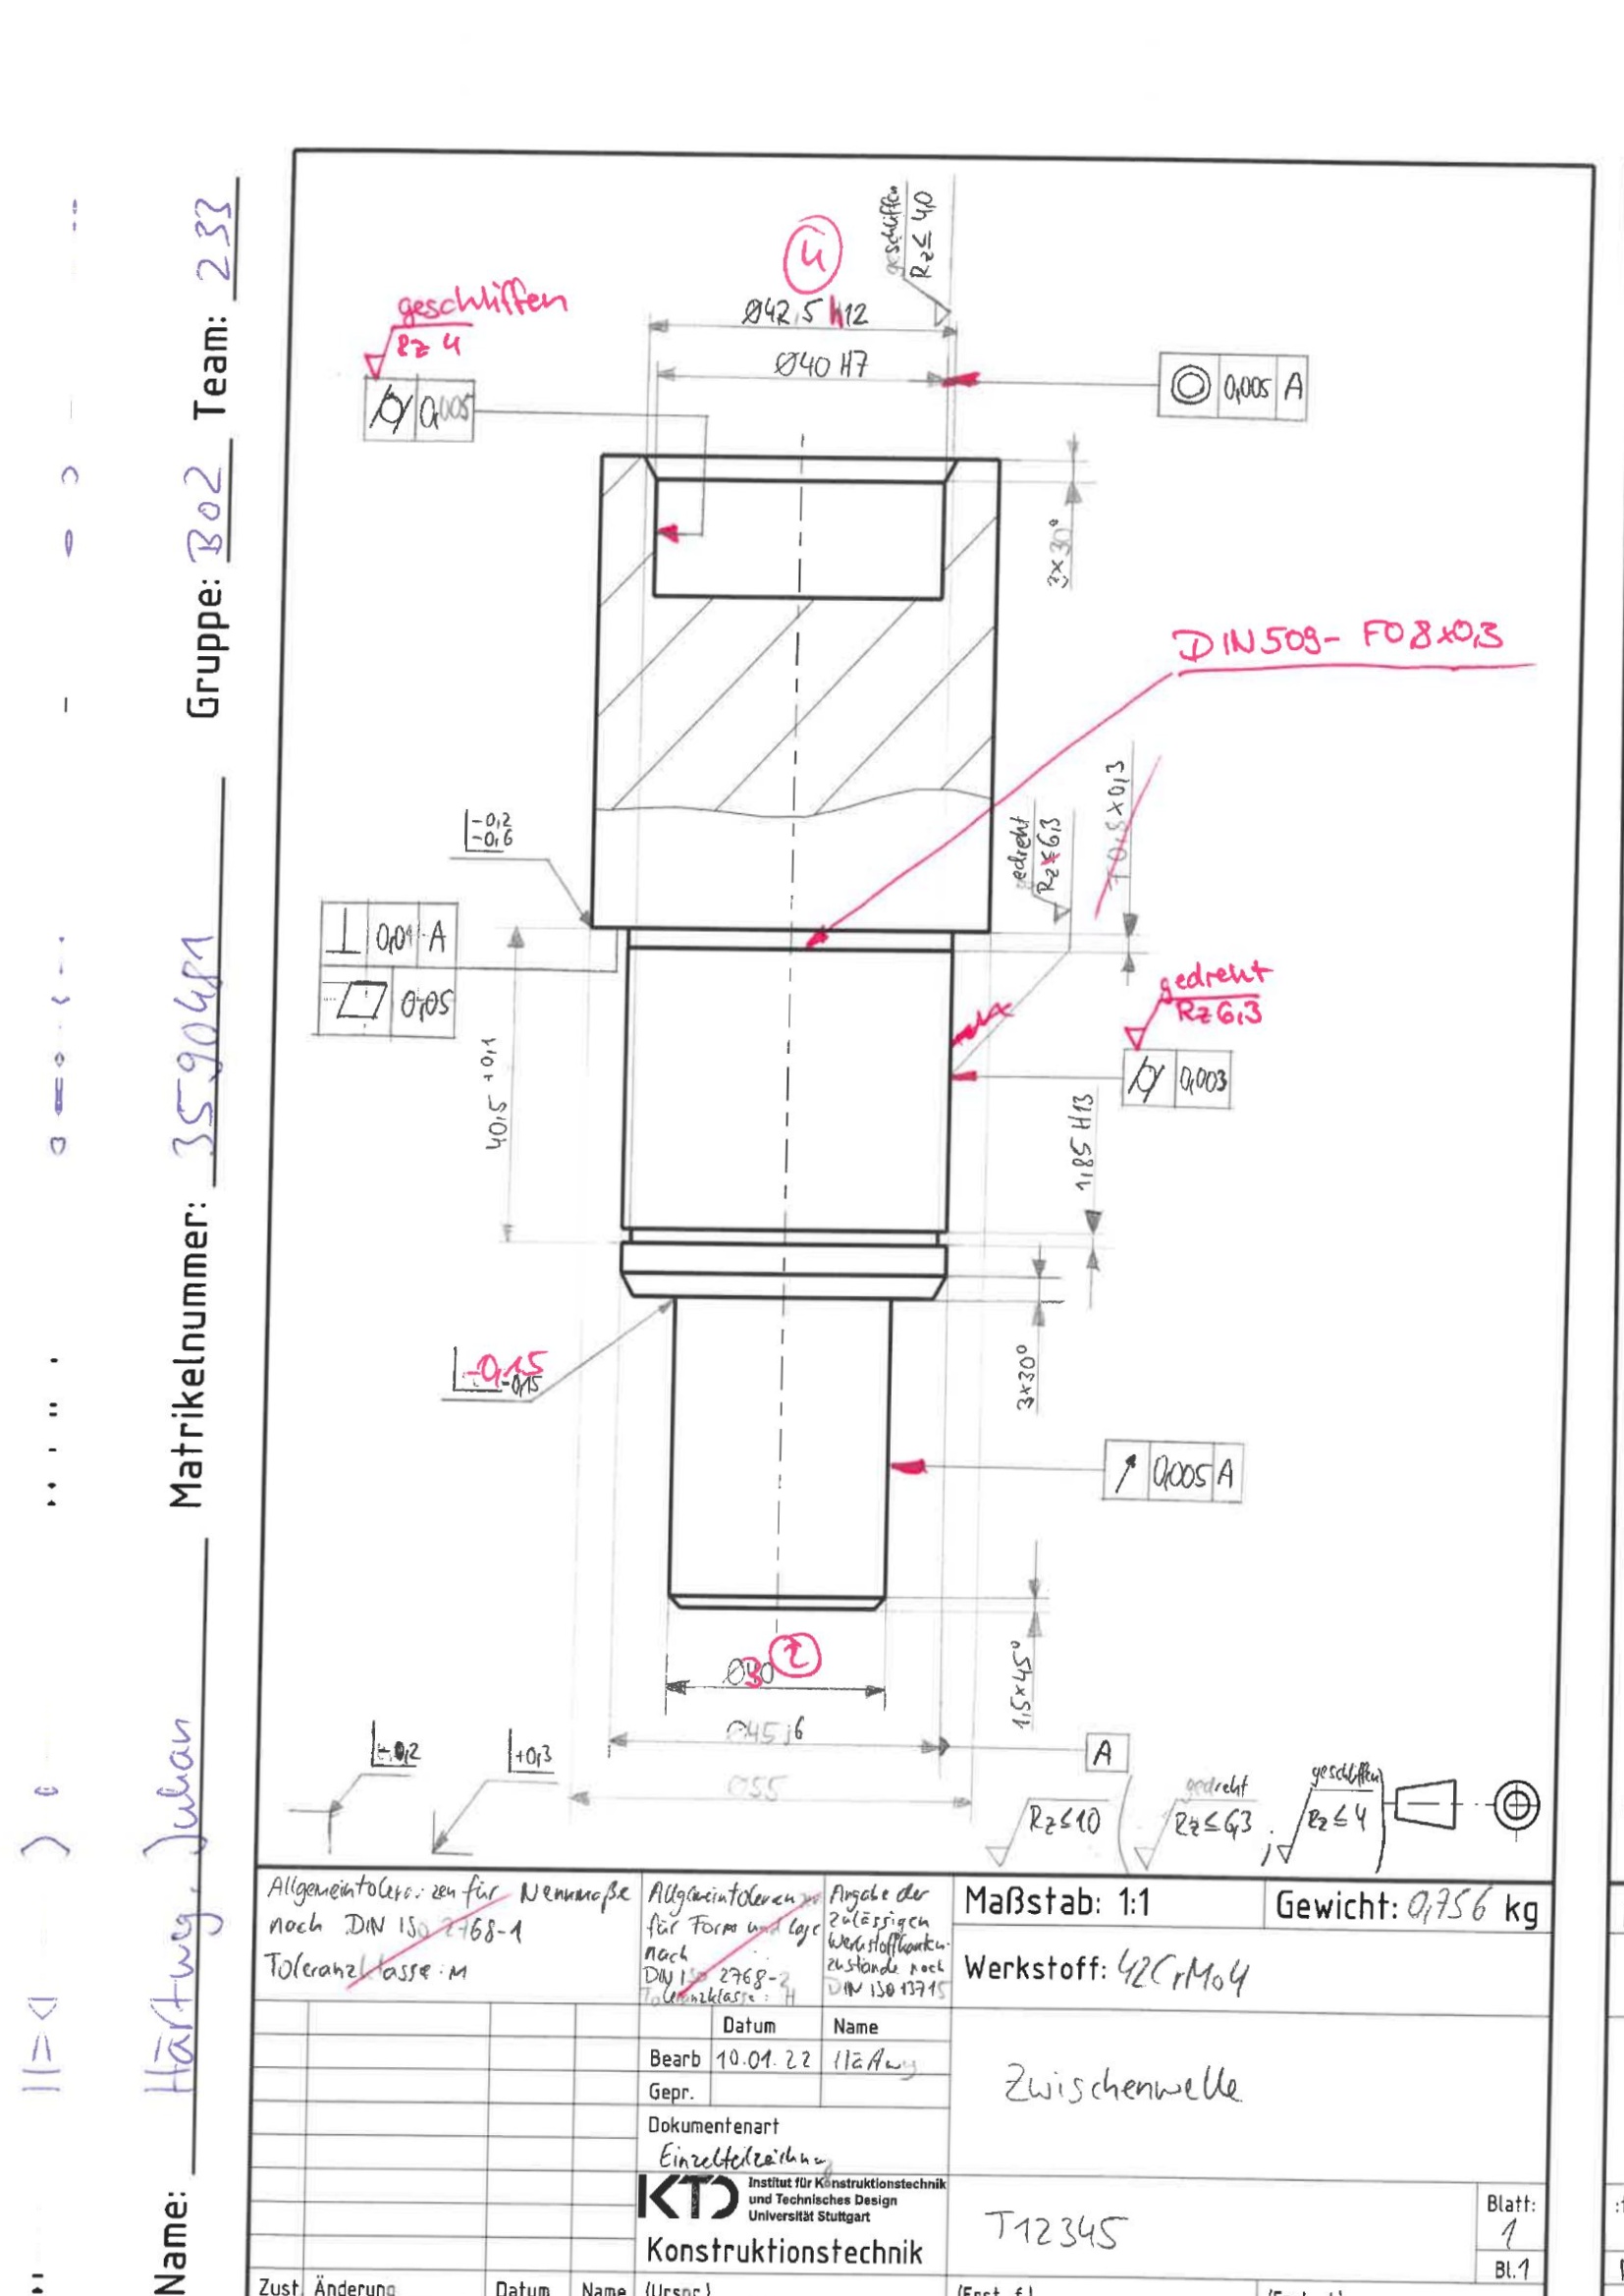 Name: Härtwig, Julian Matrikelnummer: 3590481 Gruppe: B02 Team: 233
geschliffen
Rz 4
0,005
4
Ø42,5 h12
Ø40 H7
geschliffen
Rz ≤ 4,0
0,005 A
3×30°
DIN509- F0 8x0,3
-0,2
-0,6
gedreht
Rz ≤ 6,3
0,8 × 0,3
0,01 A
0,05
40,5 +0,1
gedreht
Rz 6,3
0,003
1,85 H13
-0,15
-0,15
3×30°
0,005 A
1,5×45°
Ø30
Ø45 j6
A
Ø55
-0,2
+0,3
Rz ≤ 10
gedreht
Rz ≤ 6,3
geschliffen
Rz ≤ 4
Allgemeintoleranzen für Nennmaße
nach DIN ISO 2768-1
Toleranzklasse: M
Allgemeintoleranzen
für Form und Lage
nach
DIN ISO 2768-2
Toleranzklasse: H
Angabe der
zulässigen
Werkstoffkanten-
zustände nach
DIN ISO 13715
Maßstab: 1:1
Gewicht: 0,756 kg
Werkstoff: 42CrMo4
Datum Name
Bearb 10.01.22
Gepr.
Dokumentenart
Einzelteilzeichnung
Zwischenwelle
KTD
Institut für Konstruktionstechnik
und Technisches Design
Universität Stuttgart
Konstruktionstechnik
T12345
Blatt:
1
Bl.1
Zust. Änderung Datum Name (Urspr.)